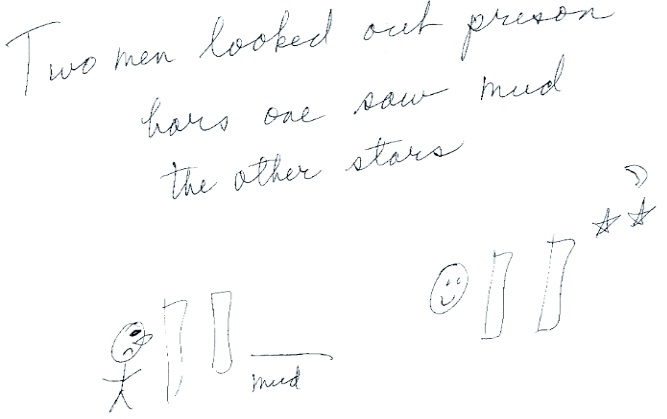 Two men looked out preson
bars one saw mud
the other stars
mud